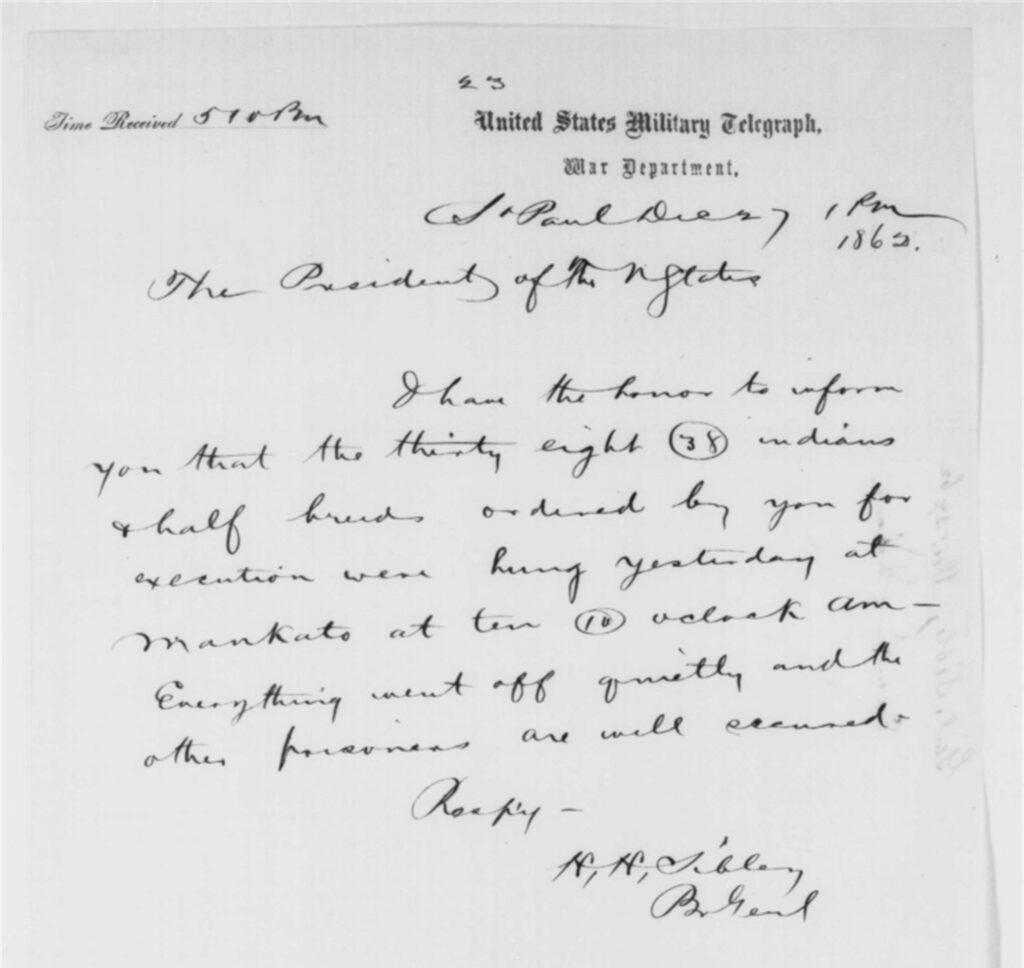 23
Time Received 510 Pm
United States Military Telegraph,
War Department.
St Paul Dec 27 1 Pm
1862.
The President of the U States
I have the honor to inform
you that the thirty eight (38) indians
& half breeds ordered by you for
execution were hung yesterday at
Mankato at ten (10) oclock am—
Everything went off quietly and the
other prisoners are well secured.
Respy—
H, H, Sibley
Br Genl